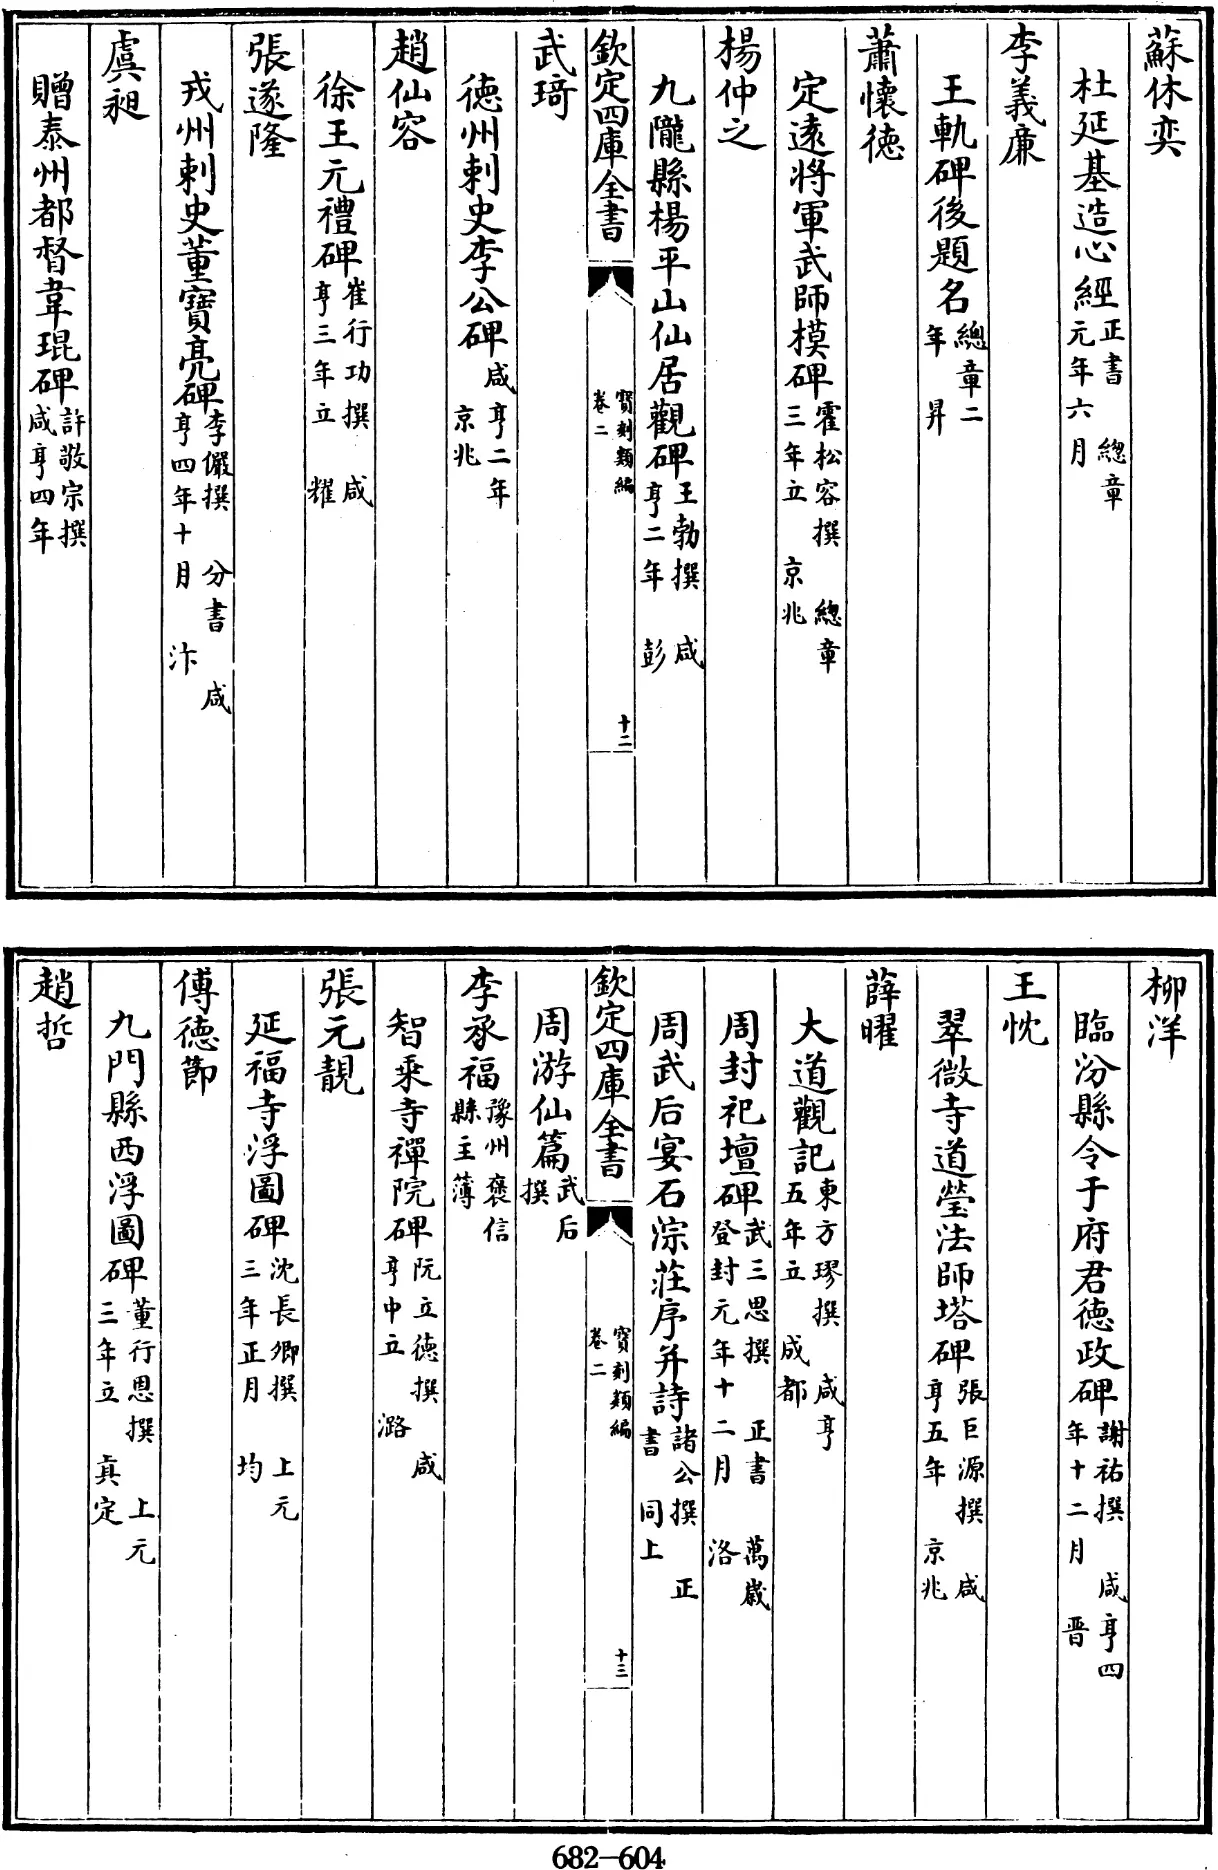 蘇休奕
杜延基造心經正書　總章元年六月
李義廉
王軌碑後題名總章二年　昇
蕭懷德
定遠將軍武師模碑霍松容撰　總章三年立　京兆
楊仲之
九隴縣楊平山仙居觀碑王勃撰　咸亨二年　彭
欽定四庫全書　寶刻類編卷二　十二
武琦
德州刺史李公碑咸亨二年　京兆
趙仙容
徐王元禮碑崔行功撰　咸亨三年立　耀
張遂隆
戎州刺史董寶亮碑李儼撰　分書　咸亨四年十月　汴
虞昶
贈泰州都督韋琨碑許敬宗撰　咸亨四年
柳洋
臨汾縣令于府君德政碑謝祐撰　咸亨四年十二月　晉
王忱
翠微寺道瑩法師塔碑張巨源撰　咸亨五年　京兆
薛曜
大道觀記東方璆撰　咸亨五年立　成都
周封祀壇碑武三思撰　正書　萬歲登封元年十二月　洛
周武后宴石淙莊序并詩諸公撰　正書　同上
欽定四庫全書　寶刻類編卷二　十三
周游仙篇武后撰
李承福豫州褒信縣主薄
智乘寺禪院碑阮立德撰　咸亨中立　潞
張元靚
延福寺浮圖碑沈長卿撰　上元三年正月　均
傅德節
九門縣西浮圖碑董行思撰　上元三年立　真定
趙哲
682-604